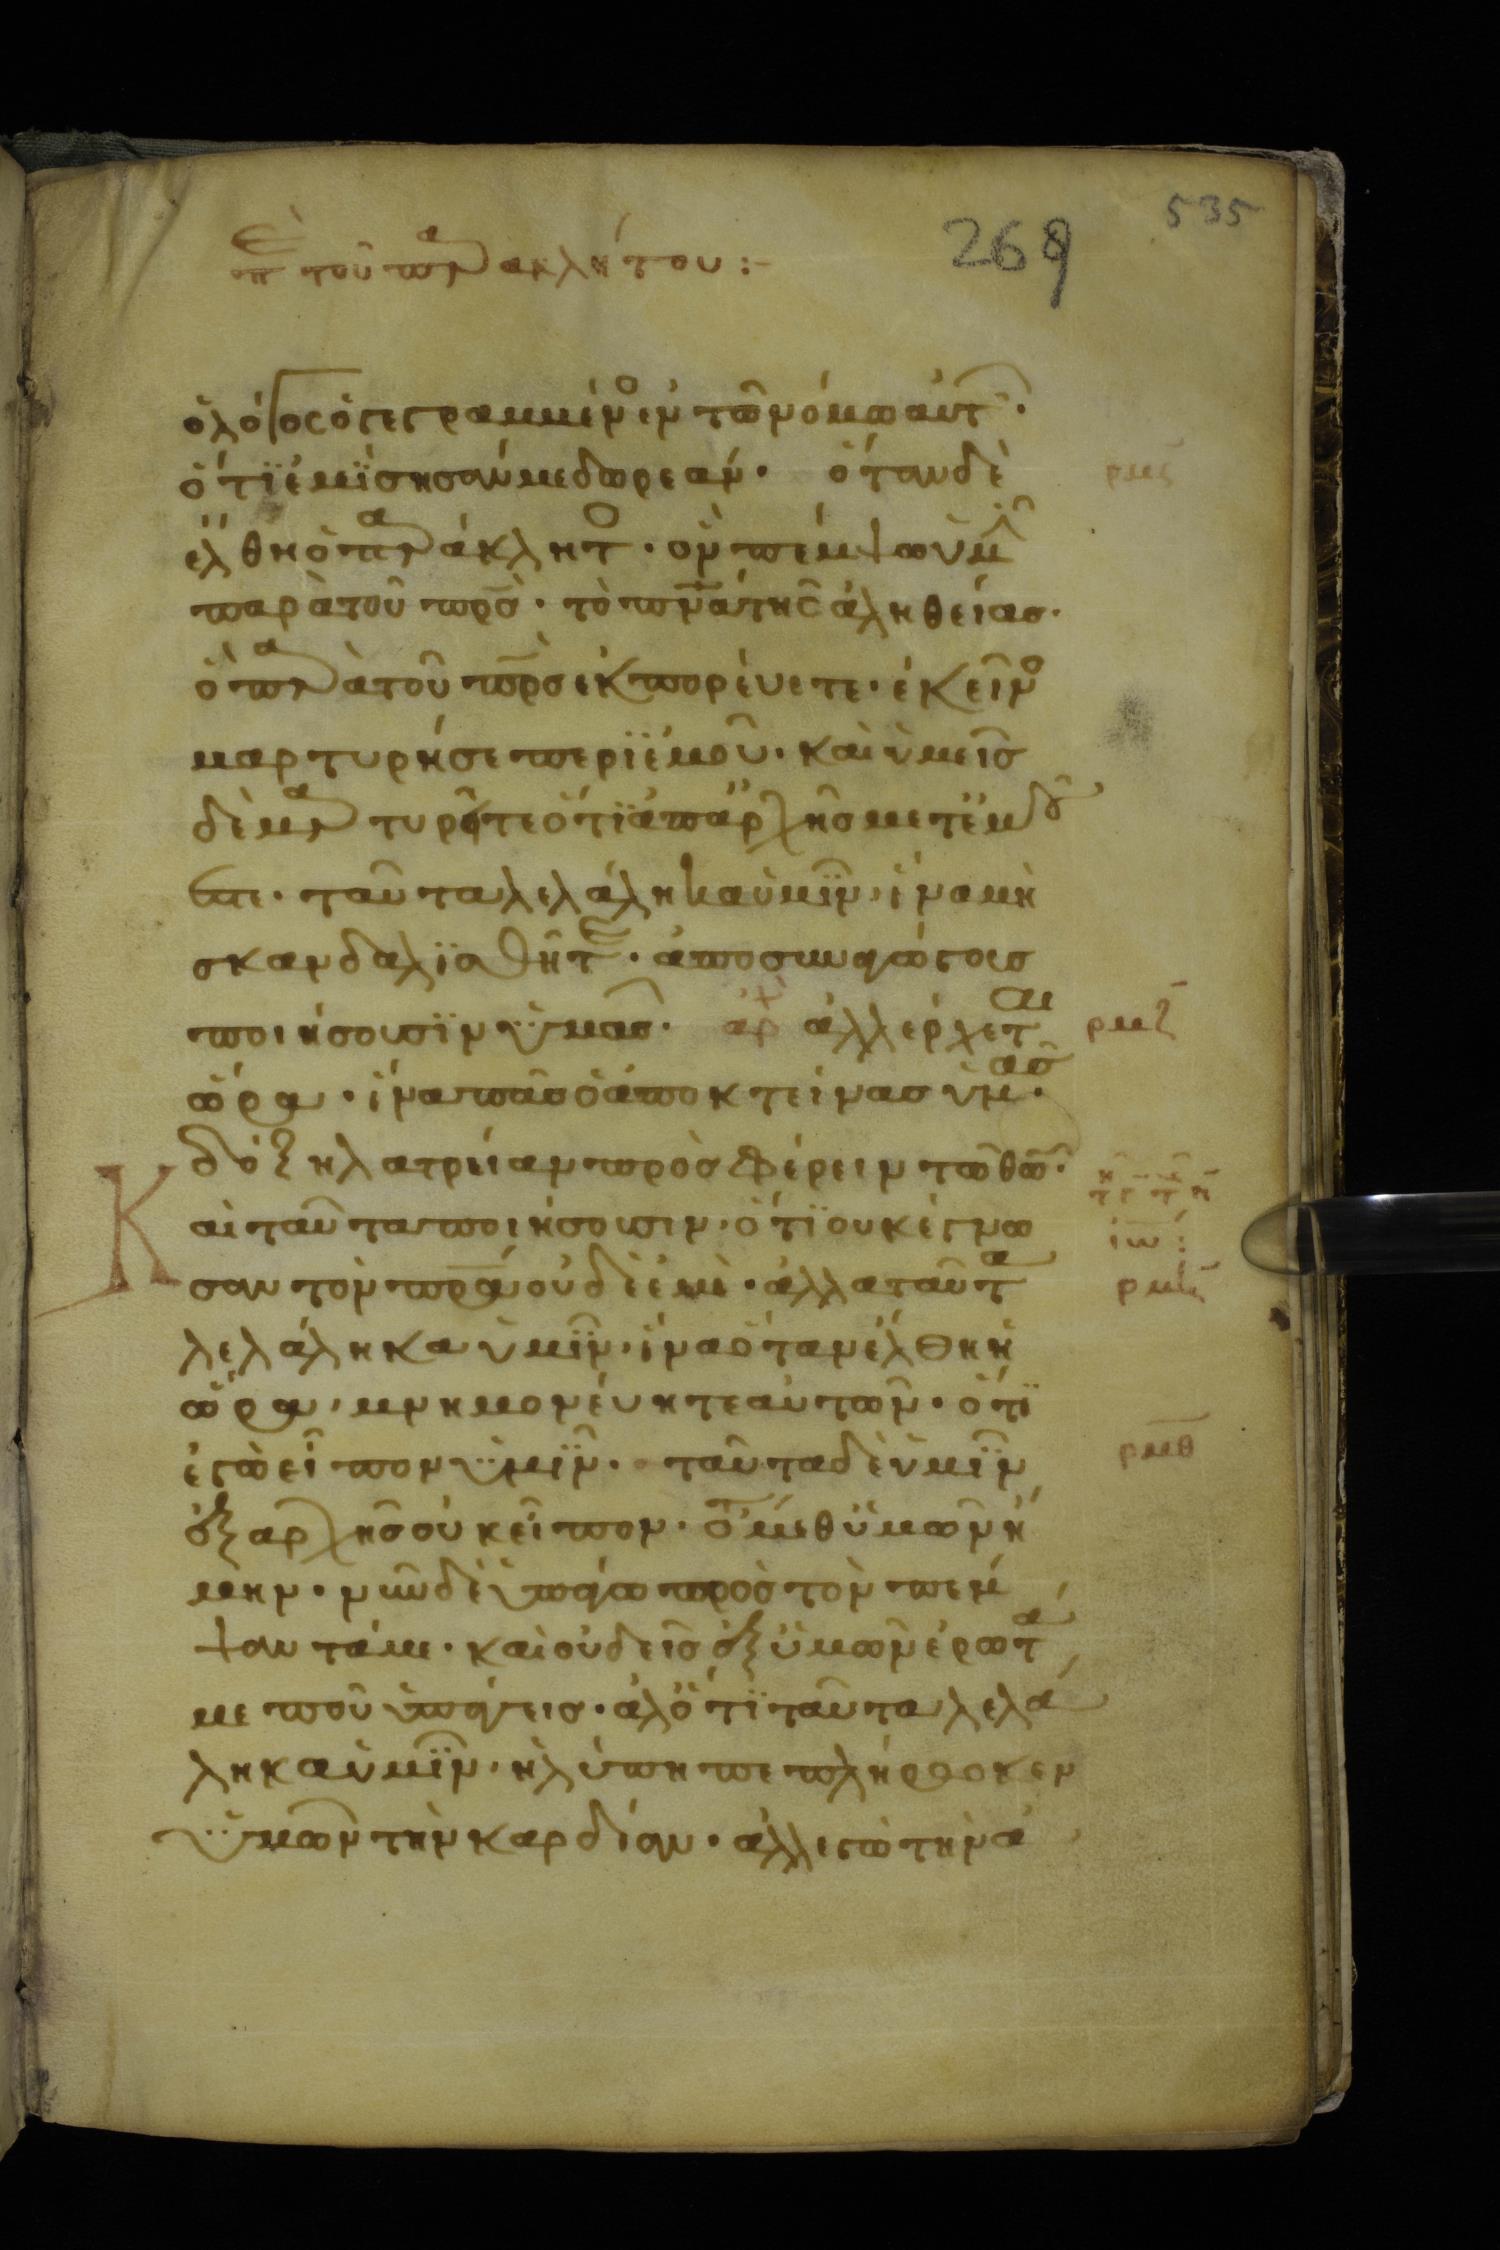 535
269
περὶ τοῦ παρακλήτου :-
ὁ λόγος ὁ γεγραμμένος ἐν τῶ νόμω αὐτῶν·
ὅτϊ ἐμϊσησάν με δωρεάν· ὅταν δὲ
ρμϛ
ἔλθη ὁ παράκλητος· ὃν πέμψω ὑμῖν
παρὰ τοῦ πρς· τὸ πνα τῆς ἀληθείας·
ὃ παρὰ τοῦ πρς ἐκπορέυετε· ἐκεῖνος
μαρτυρήσε περϊ ἐμοῦ· καὶ ὑμεῖς
δὲ μαρτυρῆτε ὅτϊ ἀπ ἀρχῆς μετ ἐμοῦ
ἐστε· ταῦτα λελάληκα ὑμῖν, ἵνα μὴ
σκανδαλϊσθῆτε· ἀποσυναγώγους
ποιήσουσϊν ὑμας· αρχ ἀλλ ἔρχεται
ρμζ
ὥρα· ἵνα πᾶς ὁ ἀποκτείνας ὑμᾶς·
δόξη λατρείαν πρὸς φέρειν τῶ θῶ·
Καὶ ταῦτα ποιήσουσιν· ὅτϊ ουκ έγνω
ἰω:
σαν τὸν πρα οὐδὲ ἐμὲ· ἀλλα ταῦτα
ρμη
λελάληκα ὑμῖν, ἵνα ὅταν ἔλθη ἡ
ὥρα, μνημονέυητε αὐτῶν· ὅτϊ
ἐγὼ εἶπον ὑμῖν· ταῦτα δὲ ὑμῖν
ρμθ
ἐξ αρχῆς οὐκ εἶπον· ὅτι μεθ ὑμῶν ἤ
μην· νῦν δὲ ὑπάγω πρὸς τὸν πέμ
ψαντά με· καὶ οὐδεῖς ἐξ ὑμῶν ἐρωτᾶ
με ποῦ ὑπάγεις· ἀλ ὅτϊ ταῦτα λελά
ληκα ὑμῖν, ἡ λύπη πεπλήρωκεν
ὑμῶν τὴν καρδίαν· ἀλλ ἐγὼ τὴν ἀ